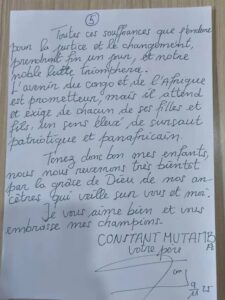 5
Toutes ces souffrances que j'endure
pour la justice et le changement,
prendront fin un jour, et notre
noble lutte triomphera.
L'avenir du Congo et de l'Afrique
est prometteur, mais il attend
et exige de chacun de ses filles et
fils, un sens élevé de sursaut
patriotique et panafricain.
Tenez donc bon mes enfants,
nous nous reverrons très bientôt
par la grâce de Dieu de nos an-
cêtres qui veille sur vous et moi.
Je vous aime bien et vous
embrasse mes champions.
CONSTANT MUTAMB
A
Votre père
9
11 25